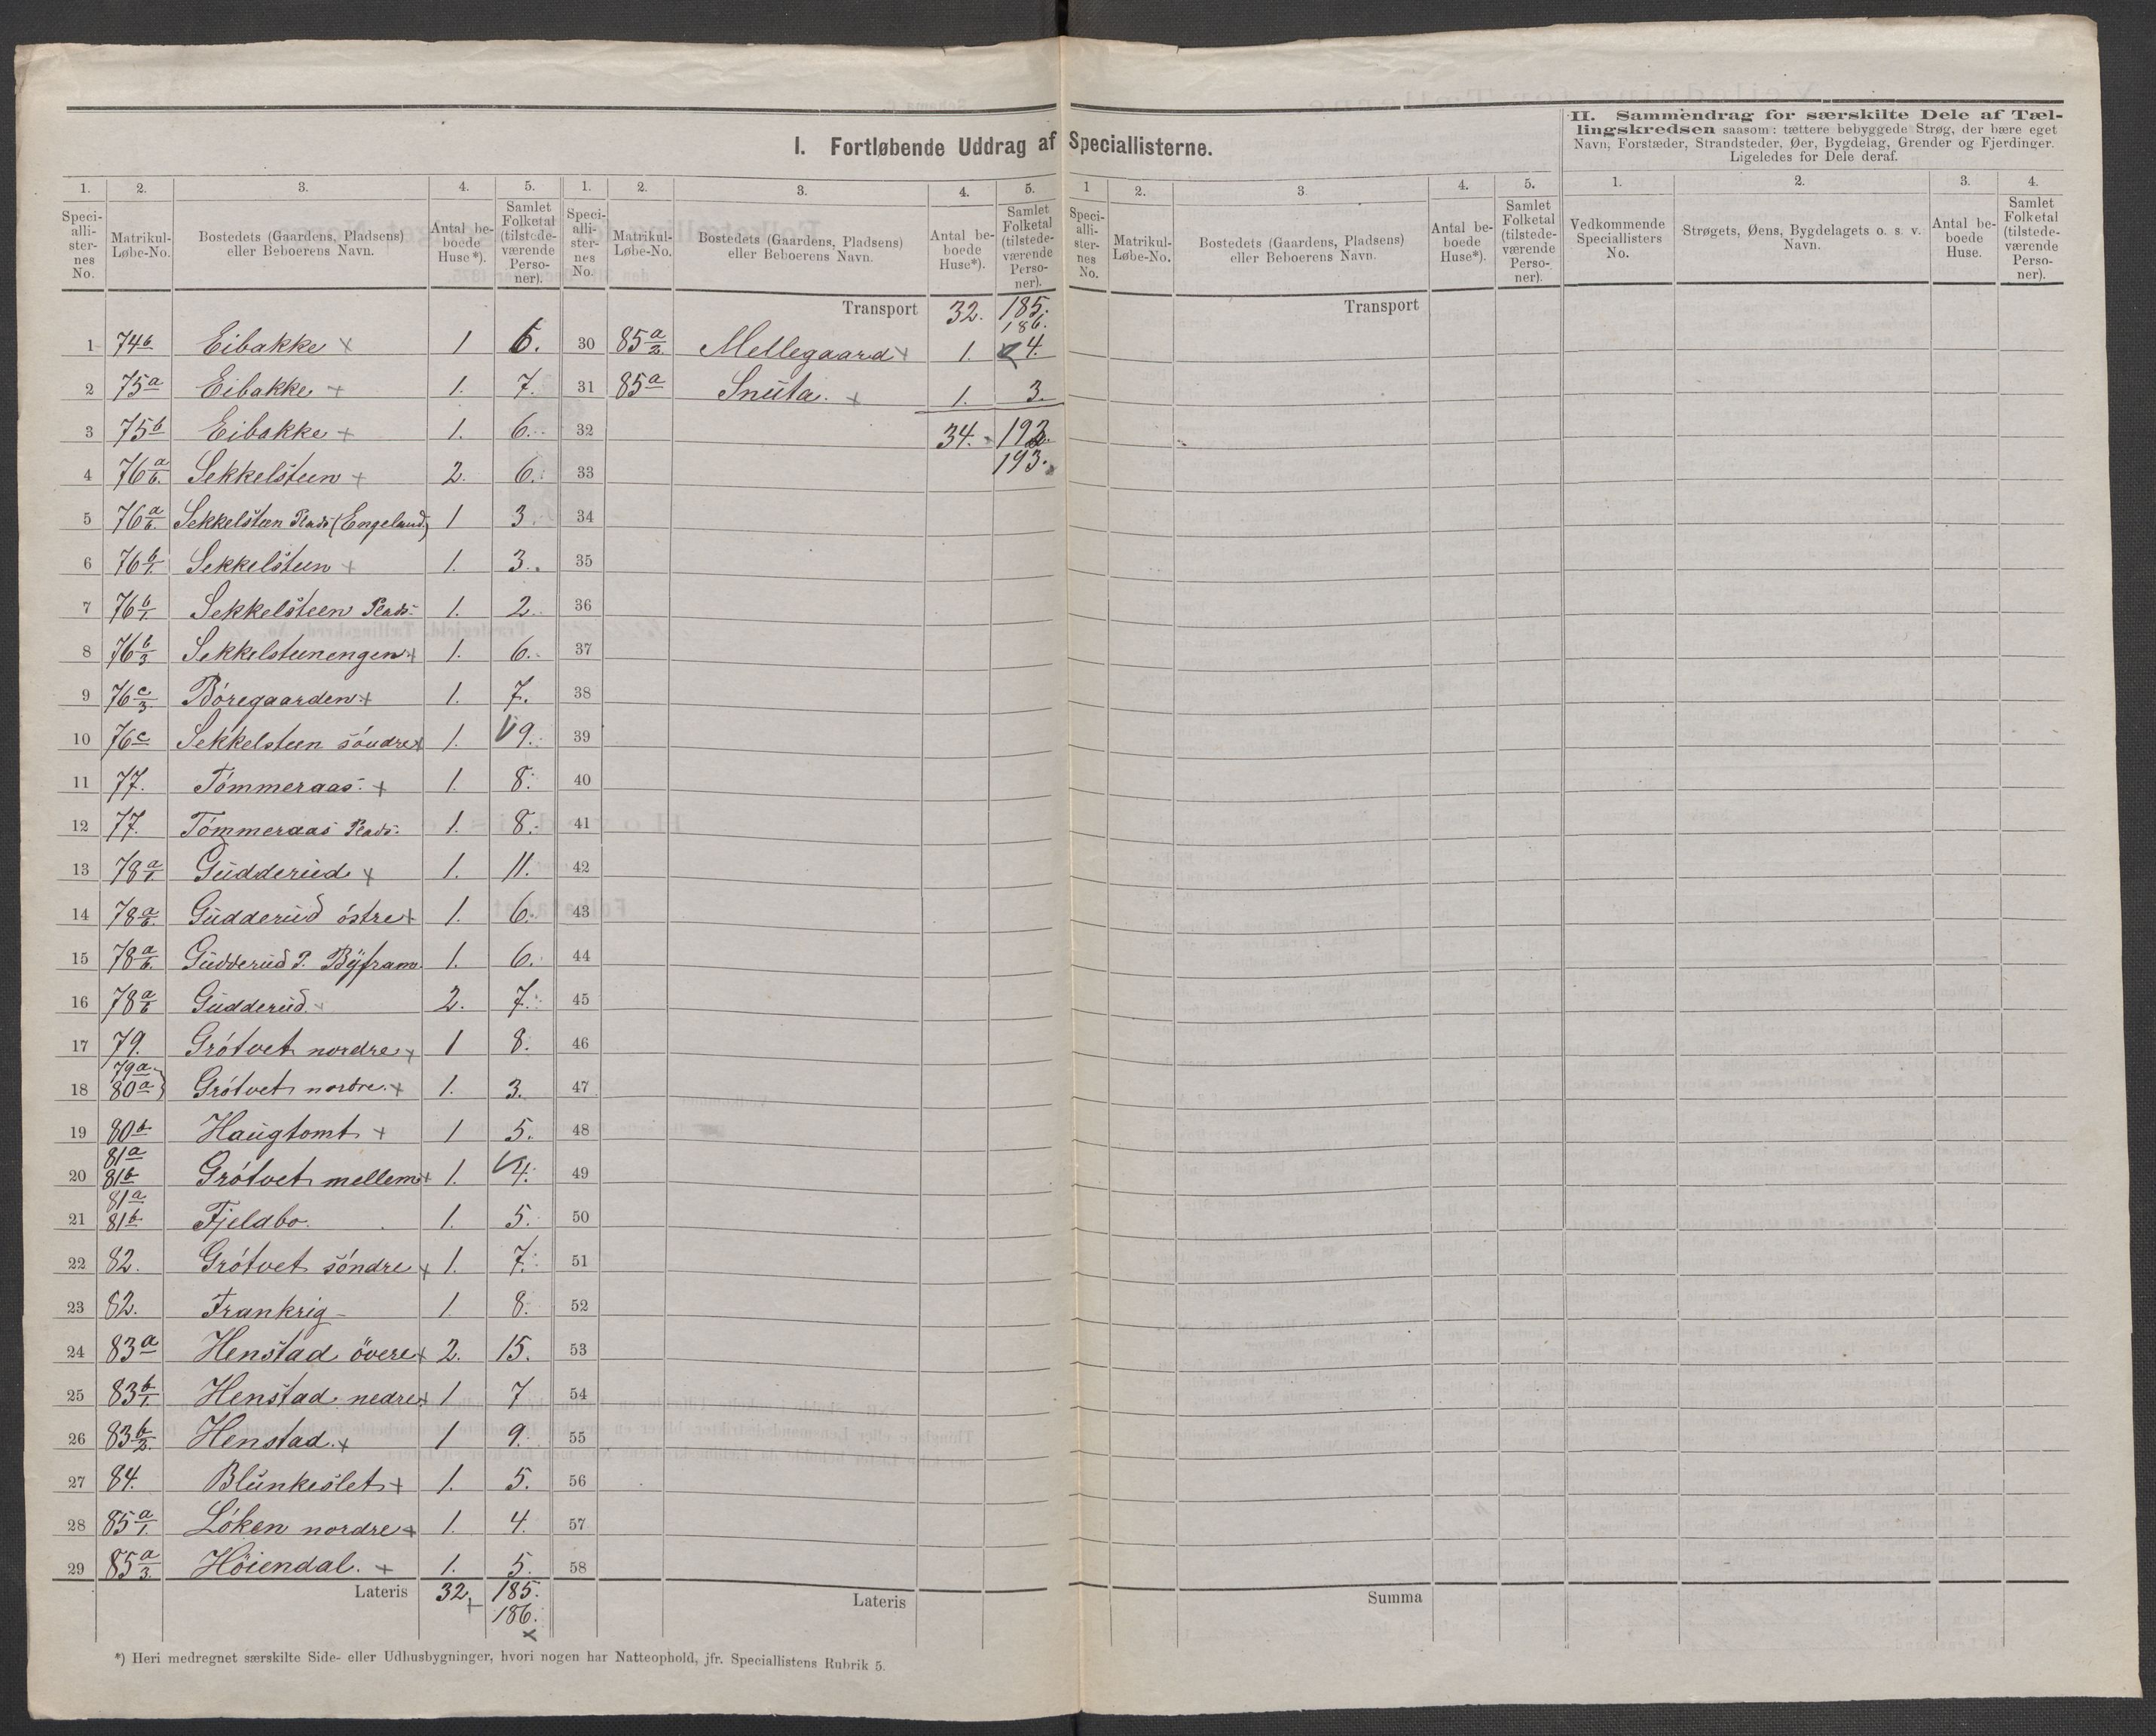 I. Fortløbende Uddrag af Speciallisterne.
II. Sammendrag for særskilte Dele af Tæl-
lingskredsen saasom: tættere bebyggede Strøg, der bære eget
Navn, Forstæder, Strandsteder, Øer, Bygdelag, Grender og Fjerdinger.
Ligeledes for Dele deraf.
1. 2. 3. 4. 5. 1. 2. 3. 4. 5. 1 2. 3 4. 5. 1. 2. 3. 4.
Speci-
alli-
ster-
nes
No.
Matrikul-
Løbe-No.
Bostedets (Gaardens, Pladsens)
eller Beboerens Navn.
Antal be-
boede
Huse*).
Samlet
Folketal
(tilstede-
værende
Perso-
ner).
Speci-
alli-
ster-
nes
No.
Matrikul-
Løbe-No.
Bostedets (Gaardens, Pladsens)
eller Beboerens Navn.
Antal be-
boede
Huse*).
Samlet
Folketal
(tilstede-
værende
Perso-
ner).
Speci-
alli-
ster-
nes
No.
Matrikul-
Løbe-No.
Bostedets (Gaardens, Pladsens)
eller Beboerens Navn.
Antal be-
boede
Huse*).
Samlet
Folketal
(tilstede-
værende
Perso-
ner).
Vedkommende
Speciallisters
No.
Strøgets, Øens, Bygdelagets o. s. v.
Navn.
Antal be-
boede
Huse.
Samlet
Folketal
(tilstede-
værende
Perso-
ner).
1 74b Eibakke x 1 6.
2 75a Eibakke x 1. 7.
3 75b Eibakke x 1. 6.
4 76a/b. Sekkelsteen x 2. 6.
5 76a/b. Sekkelsteen Plads (Engeland) 1 3
6 76b/1. Sekkelsteen x 1. 3.
7 76b/1. Sekkelsteen Plads 1. 2.
8 76b/3 Sekkelsteenengen x 1. 6.
9 76c/3 Böregaarden x 1. 7.
10 76c Sekkelsteen söndre x 1. 9.
11 77. Tömmeraas. x 1. 8.
12 77. Tömmeraas Plads. 1. 8.
13 78a/1. Gudderud x 1. 11.
14 78a/b. Gudderud östre x 1. 6.
15 78a/b. Gudderud P. Byfram 1. 6.
16 78a/b Gudderud x 2. 7.
17 79. Grötvet nordre x 1 8.
18 79a 80a } Grötvet nordre. x 1. 3.
19 80b Haugtomt x 1 5.
20 81a 81b Grötvet mellem x 1. 4.
21 81a 81b Fjeldbo. 1. 5.
22 82. Grötvet söndre x 1. 7.
23 82. Frankrig 1. 8.
24 83a Henstad övere x 2. 15.
25 83b/1. Henstad nedre x 1 7
26 83b/2. Henstad. x 1 9.
27 84. Blunkeslet x 1. 5.
28 85a/1. Löken nordre x 1. 4.
29 85a/3. Höiendal. x 1. 5.
Lateris 32. 185.
186.
x
Transport 32. 185.
186.
30 85a/2. Mellegaard x 1. 4.
31 85a Snuta. x 1. 3.
32 34. 192.
33 193.
34
35
36
37
38
39
40
41
42
43
44
45
46
47
48
49
50
51
52
53
54
55
56
57
58
Lateris
Transport
Summa
*) Heri medregnet særskilte Side- eller Udhusbygninger, hvori nogen har Natteophold, jfr. Speciallistens Rubrik 5.